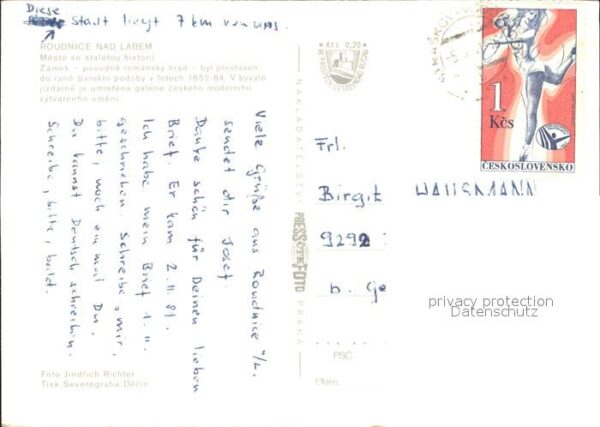 Diese
Stadt liegt 7 km von uns.
ROUDNICE NAD LABEM
Město se staletou historií
Zámek – původně románský hrad – byl přestavěn
do raně barokní podoby v letech 1652-84. V bývalé
jízdárně je umístěna galerie českého moderního
výtvarného umění.
Viele Grüße aus Roudnice n/L.
sendet dir Josef.
Danke schön für Deinen lieben
Brief. Er kam 2. II. 81.
Ich habe mein Brief 1. II.
geschrieben. Schreibe, mir,
bitte, noch ein mal Du,
Du kannst Deutsch schreiben.
Schreibe, bitte, bald.
Foto Jindřich Richter
Tisk Severografia Děčín
Kčs 0,20
NAKLADATELSTVÍ PRESSFOTO PRAHA
1
Kčs
ČESKOSLOVENSKO
Frl.
Birgit HAUSMANN
9292
b. Ge
privacy protection
Datenschutz
PSČ